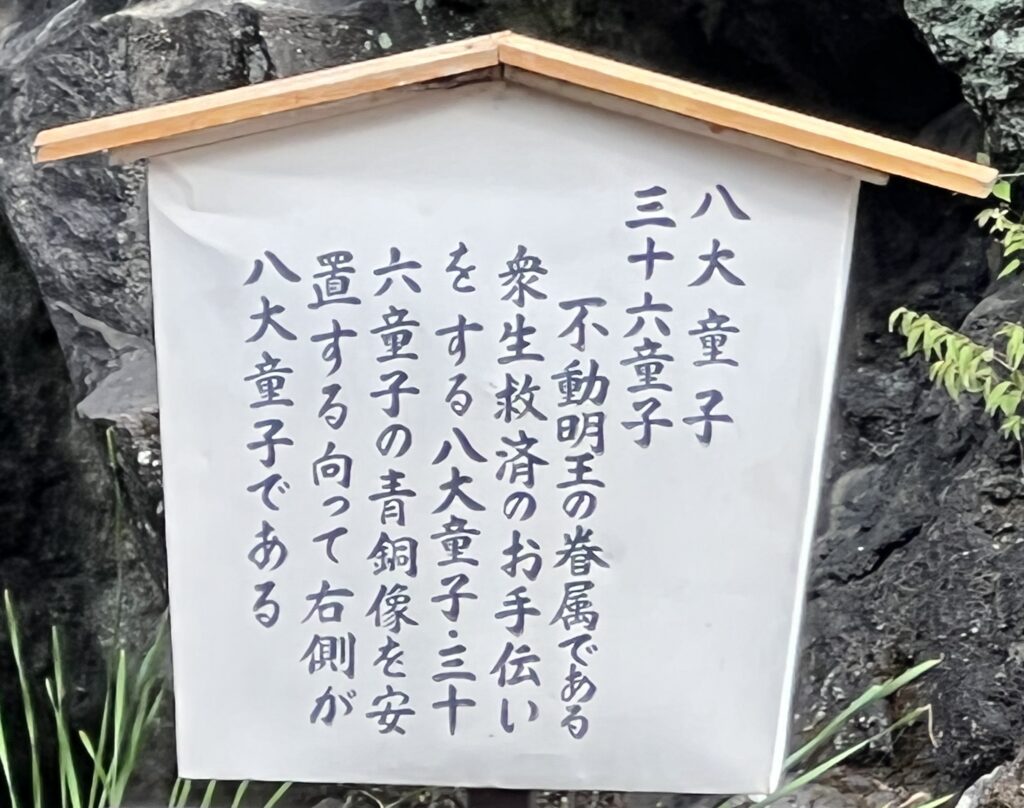 八大童子
三十六童子
不動明王の眷属である
衆生救済のお手伝い
をする八大童子・三十
六童子の青銅像を安
置する向って右側が
八大童子である